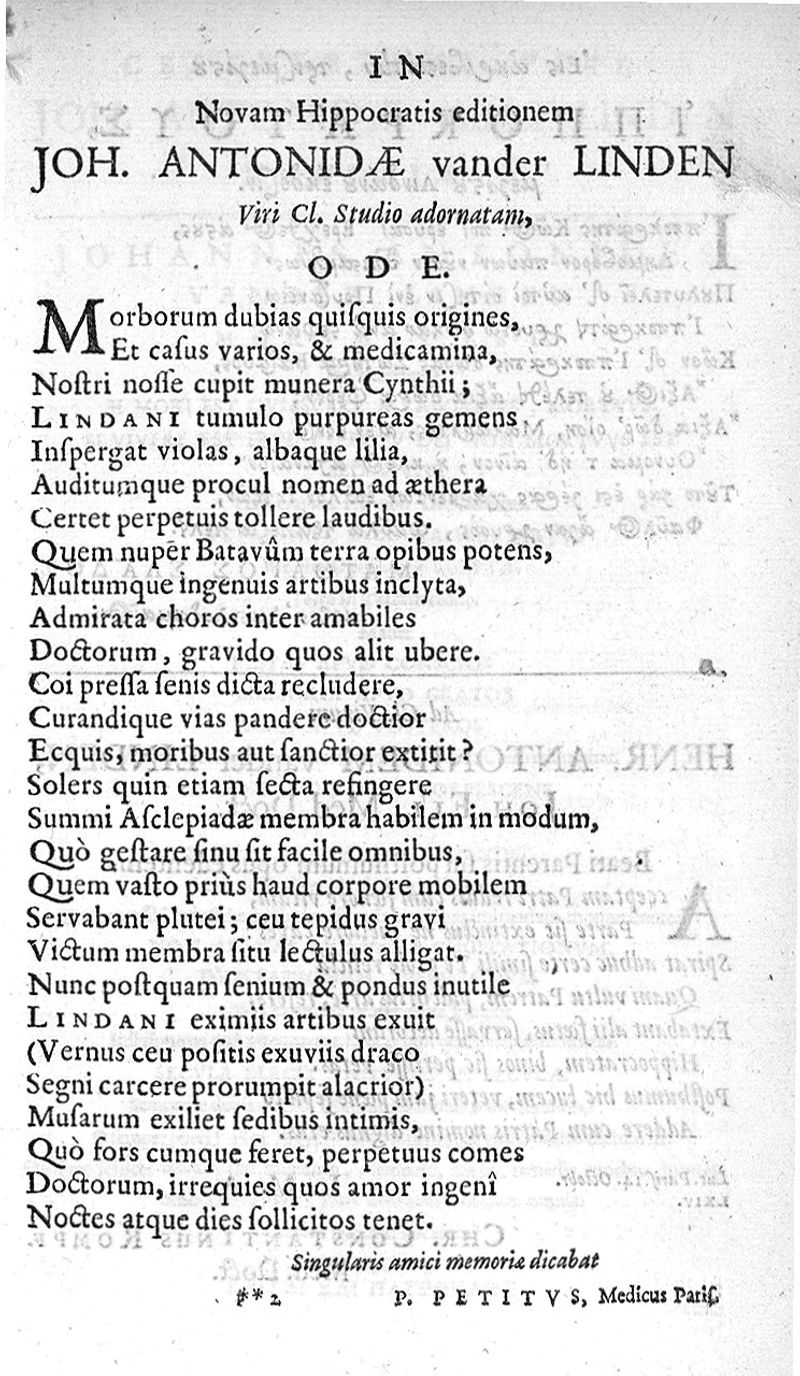 IN
Novam Hippocratis editionem
JOH. ANTONIDÆ vander LINDEN
Viri Cl. Studio adornatam,
ODE.
Morborum dubias quiſquis origines,
Et caſus varios, & medicamina,
Noſtri noſſe cupit munera Cynthii;
LINDANI tumulo purpureas gemens
Inſpergat violas, albaque lilia,
Auditumque procul nomen ad æthera
Certet perpetuis tollere laudibus.
Quem nupēr Batavûm terra opibus potens,
Multumque ingenuis artibus inclyta,
Admirata choros inter amabiles
Doctorum, gravido quos alit ubere.
Coi preſſa ſenis dicta recludere,
Curandique vias pandere doctior
Ecquis, moribus aut ſanctior extitit?
Solers quin etiam ſecta refingere
Summi Aſclepiadæ membra habilem in modum,
Quò geſtare ſinu ſit facile omnibus,
Quem vaſto priùs haud corpore mobilem
Servabant plutei; ceu tepidus gravi
Victum membra ſitu lectulus alligat.
Nunc poſtquam ſenium & pondus inutile
LINDANI eximiis artibus exuit
(Vernus ceu poſitis exuviis draco
Segni carcere prorumpit alacrior)
Muſarum exiliet ſedibus intimis,
Quò fors cumque feret, perpetuus comes
Doctorum, irrequies quos amor ingenî
Noctes atque dies ſollicitos tenet.
Singularis amici memoriæ dicabat
**2 P. PETITVS, Medicus Pariſ.